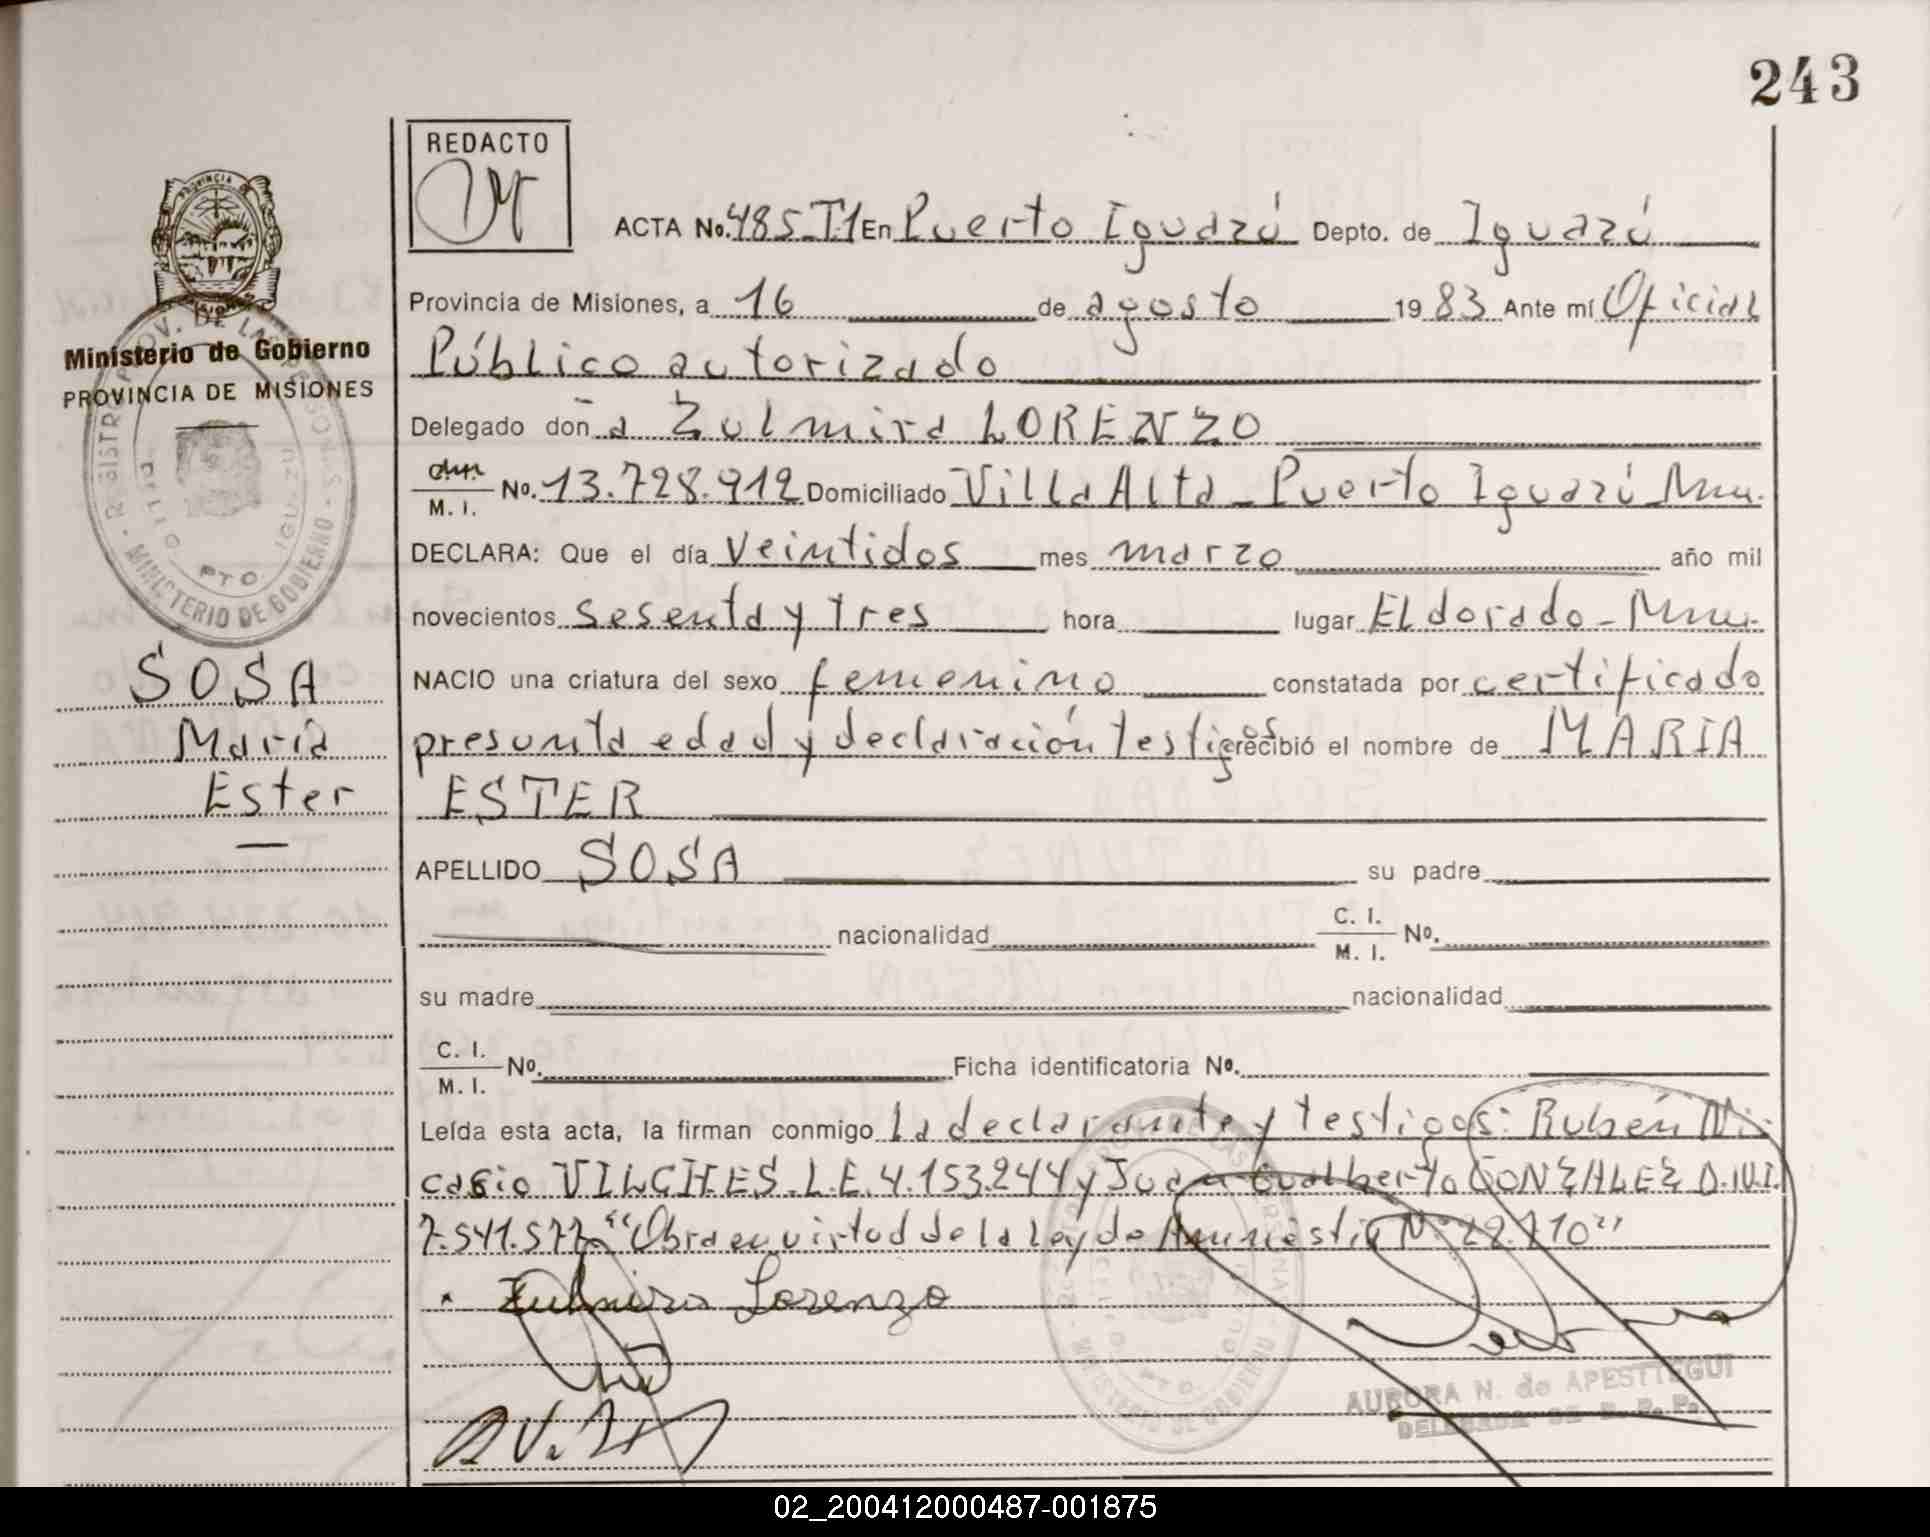 243
REDACTO
ACTA No. 485.T1 En Puerto Iguazú Depto. de Iguazú
Provincia de Misiones, a 16 de agosto 1983 Ante mí Oficial
Público autorizado
Ministerio de Gobierno
PROVINCIA DE MISIONES
Delegado doña Zulmira LORENZO
M. I. No. 13.728.912 Domiciliado Villa Alta - Puerto Iguazú Mnes.
DECLARA: Que el día veintidos mes marzo año mil
novecientos sesenta y tres hora lugar Eldorado - Mnes.
SOSA
María
Ester
NACIO una criatura del sexo femenino constatada por certificado
presunta edad y declaración testigos recibió el nombre de MARIA
ESTER
APELLIDO SOSA su padre
nacionalidad C. I. M. I. No.
su madre nacionalidad
C. I. M. I. No. Ficha identificatoria No.
Leída esta acta, la firman conmigo la declarante y testigos: Rubén Ni-
casio VILCHES. L.E. 4.153.244 y Juan Gualberto GONZALEZ D.N.I.
7.541.577 "Obra en virtud de la Ley de Amnistía Nº 22.710"
Zulmira Lorenzo
AURORA N. de APESTTEGUI
DELEGADA DE R. P. P.
MINISTERIO DE GOBIERNO
02_200412000487-001875